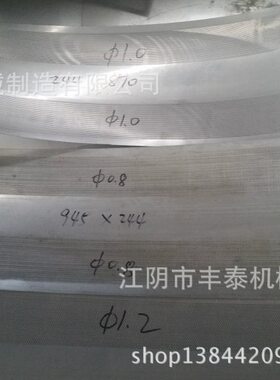 Φ1.0
244 870
械制造有限公司
Φ1.0
Φ0.8
945 × 244
Φ0.8
江阴市丰泰机械
Φ1.2
shop13844209